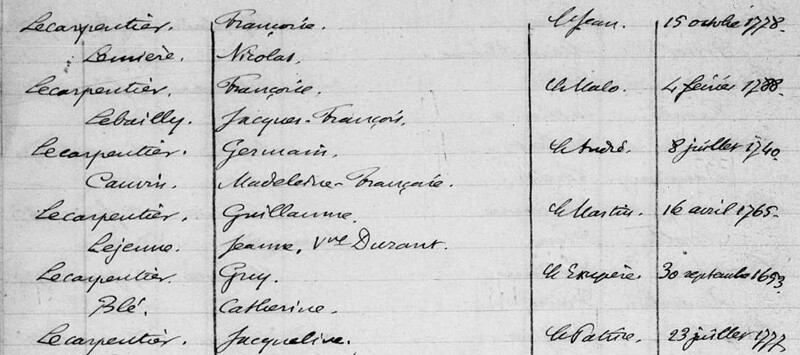 Lecarpentier. Françoise. St Jean. 15 octobre 1778.
Lemière. Nicolas.
Lecarpentier. Françoise. St Malo. 4 février 1788.
Lebailly. Jacques-François.
Lecarpentier. Germain. St André. 8 juillet 1740.
Cauvin. Madeleine-Françoise.
Lecarpentier. Guillaume. St Martin. 16 avril 1765.
Lejeune. Jeanne, Vve Durant.
Lecarpentier. Guy. St Exupère. 30 septembre 1653
Blé. Catherine.
Lecarpentier. Jacqueline. St Patrice. 23 juillet 1777.